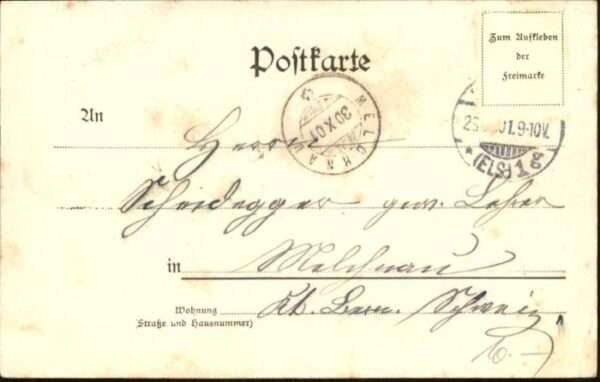 Postkarte
Zum Aufkleben
der
Freimarke
MELCHNAU
30 X 01
25 01. 9-10V.
* (ELS) 1 g
An Herrn
Scheidegger gew. Lehrer
in Melchnau
Wohnung
(Straße und Hausnummer)
Kt. Bern. Schweiz